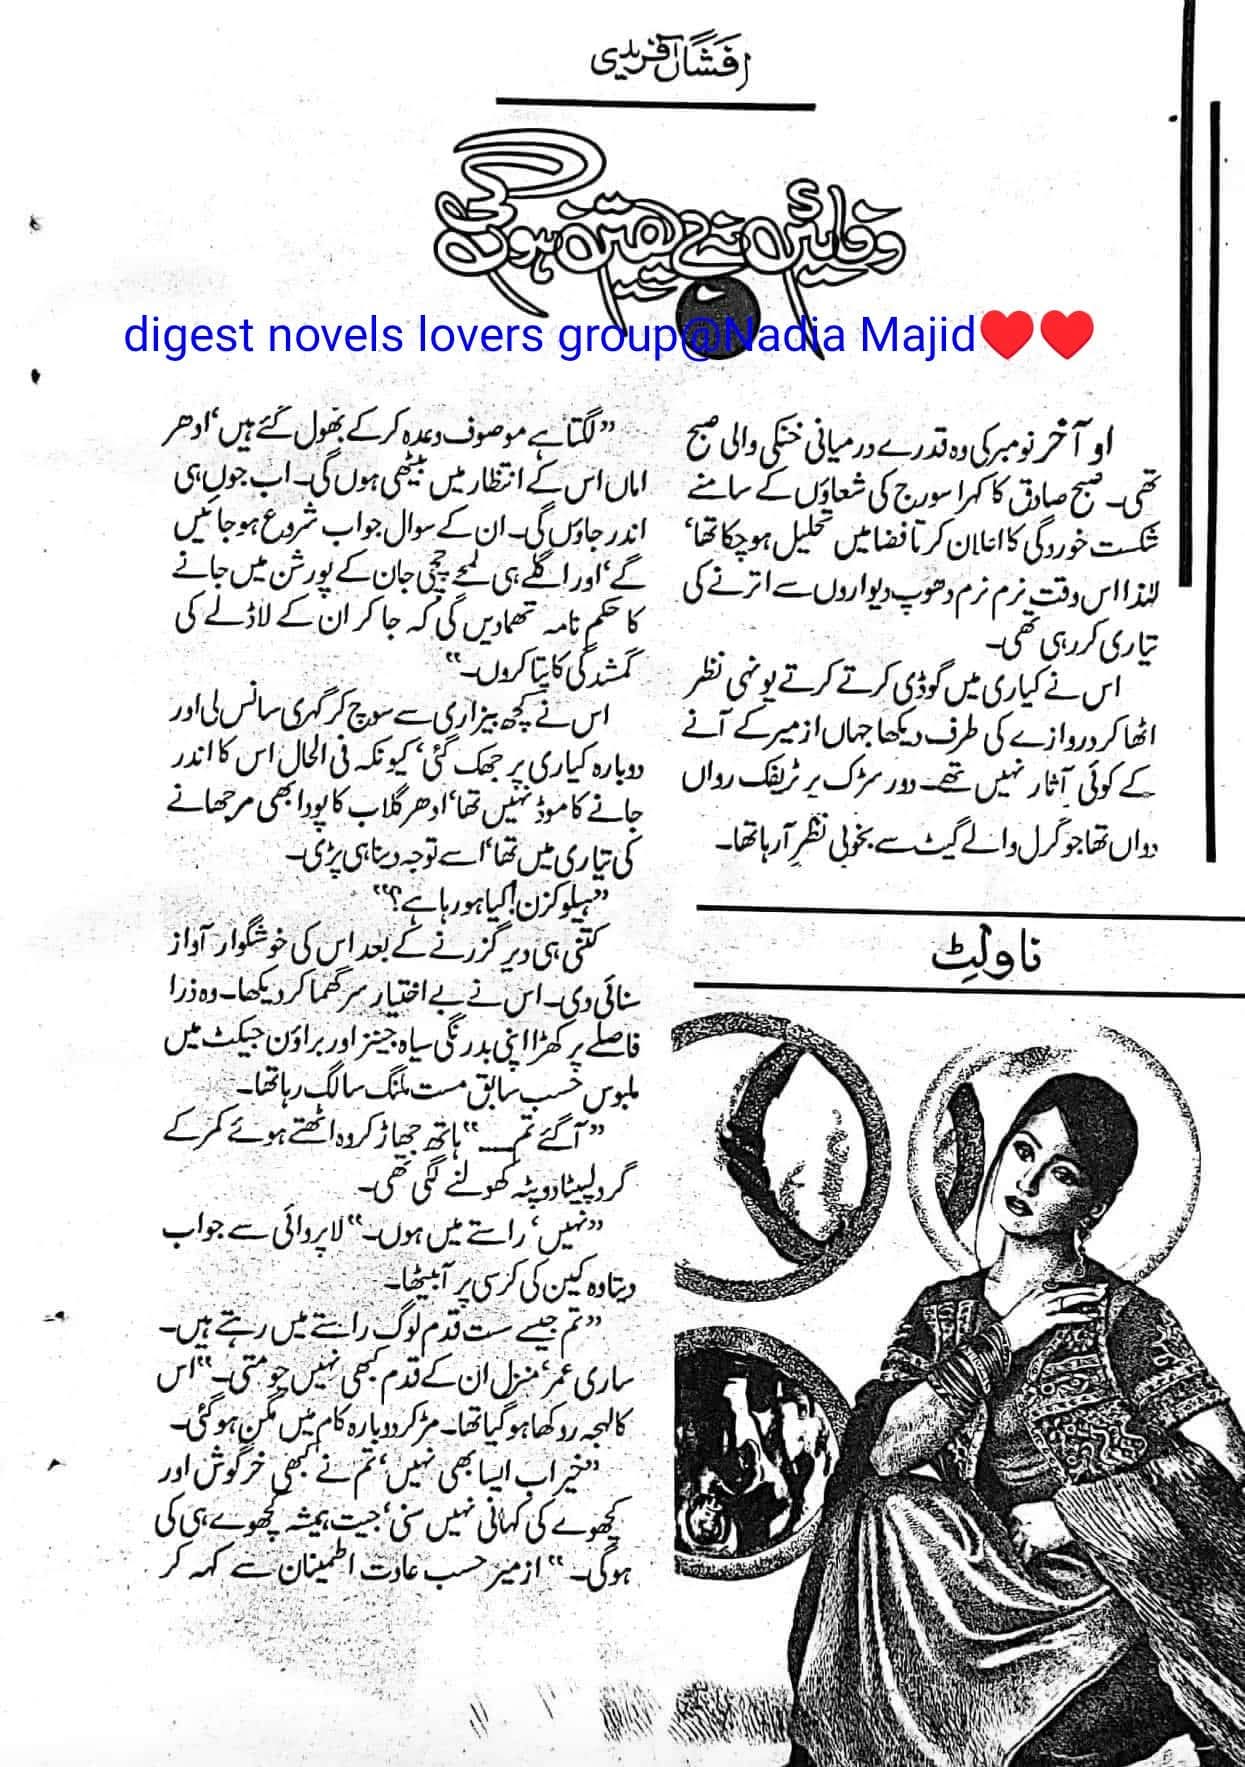 افشاں آفریدی
وفائیں بے یقیں ہوں گی
digest novels lovers group@Nadia Majid❤️❤️
اواخر نومبر کی وہ قدرے درمیانی خنکی والی صبح
تھی۔ صبح صادق کا کہرا سورج کی شعاؤں کے سامنے
شکست خوردگی کا اعلان کرتا فضا میں تحلیل ہوچکا تھا‘
لہٰذا اس وقت نرم نرم دھوپ دیواروں سے اترنے کی
تیاری کررہی تھی۔
اس نے کیاری میں گوڈی کرتے کرتے یونہی نظر
اٹھا کر دروازے کی طرف دیکھا جہاں ازمیر کے آنے
کے کوئی آثار نہیں تھے۔ دور سڑک پر ٹریفک رواں
دواں تھا جو گرل والے گیٹ سے بخوبی نظر آرہا تھا۔
ناولٹ
”لگتا ہے موصوف وعدہ کرکے بھول گئے ہیں‘ ادھر
اماں اس کے انتظار میں بیٹھی ہوں گی۔ اب جوں ہی
اندر جاؤں گی۔ ان کے سوال جواب شروع ہوجائیں
گے‘ اور اگلے ہی لمحے چچی جان کے پورشن میں جانے
کا حکم نامہ تھمادیں گی کہ جا کر ان کے لاڈلے کی
گمشدگی کا پتا کروں۔“
اس نے کچھ بیزاری سے سوچ کر گہری سانس لی اور
دوبارہ کیاری پر جھک گئی‘ کیونکہ فی الحال اس کا اندر
جانے کا موڈ نہیں تھا‘ ادھر گلاب کا پودا بھی مرجھانے
کی تیاری میں تھا‘ اسے توجہ دینا ہی پڑی۔
”ہیلو کزن! کیا ہورہا ہے؟“
کتنی ہی دیر گزرنے کے بعد اس کی خوشگوار آواز
سنائی دی۔ اس نے بے اختیار سر گھما کر دیکھا۔ وہ ذرا
فاصلے پر کھڑا اپنی بدرنگی سیاہ جینز اور براؤن جیکٹ میں
ملبوس حسب سابق مست ملنگ سا لگ رہا تھا۔
”آگئے تم۔۔۔“ ہاتھ جھاڑ کر وہ اٹھتے ہوئے کمر کے
گرد لپیٹا دوپٹہ کھولنے لگی تھی۔
”نہیں‘ راستے میں ہوں۔“ لاپروائی سے جواب
دیتا وہ کین کی کرسی پر آبیٹھا۔
”تم جیسے ست قدم لوگ راستے میں رہتے ہیں۔
ساری عمر‘ منزل ان کے قدم کبھی نہیں چومتی۔“ اس
کا لہجہ روکھا ہوگیا تھا۔ مڑ کر دوبارہ کام میں مگن ہوگئی۔
”خیر اب ایسا بھی نہیں‘ تم نے کبھی خرگوش اور
کچھوے کی کہانی نہیں سنی‘ جیت ہمیشہ کچھوے ہی کی
ہوگی۔“ ازمیر حسب عادت اطمینان سے کہہ کر